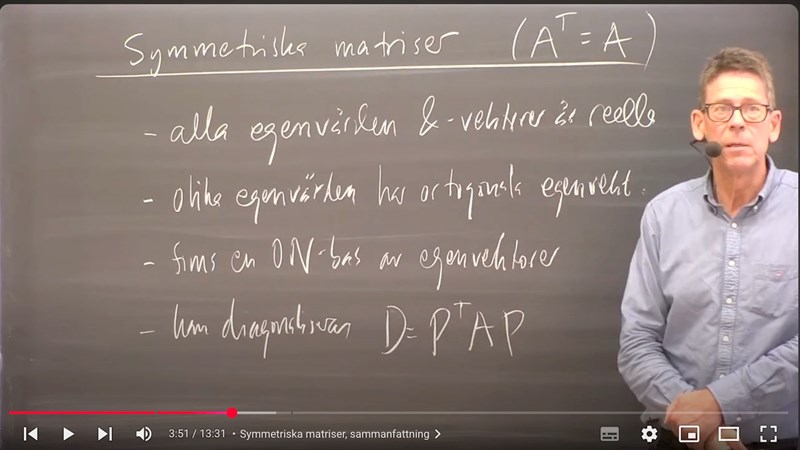 Symmetriska matriser (Aᵀ = A)
- alla egenvärden & -vektorer är reella
- olika egenvärden har ortogonala egenvekt.
- finns en ON-bas av egenvektorer
- kan diagonaliseras D = PᵀAP
3:51 / 13:31 • Symmetriska matriser, sammanfattning